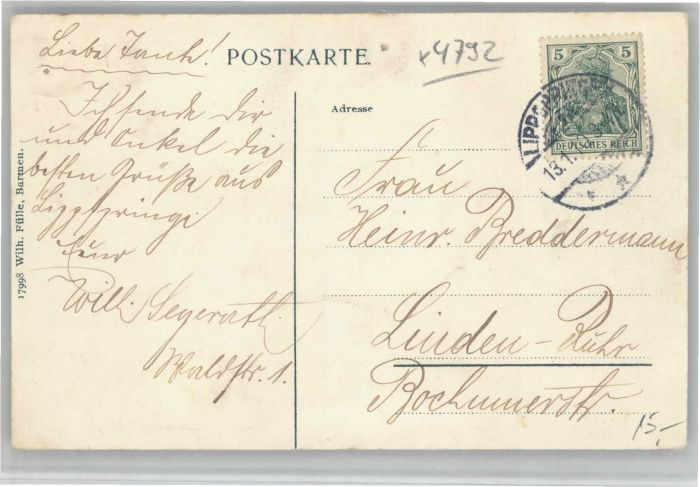 Liebe Tante!
Ich sende dir
und Onkel die
besten Grüße aus
Lippspringe
Euer
Willi Segerath.
Waldstr. 1.
17998 Wilh. Fülle, Barmen.
POSTKARTE.
x4792
Adresse
5 5
DEUTSCHES REICH
LIPPSPRINGE
13.1
Frau
Heinr. Breddermann
Linden-Ruhr
Bochumerstr.
15,-